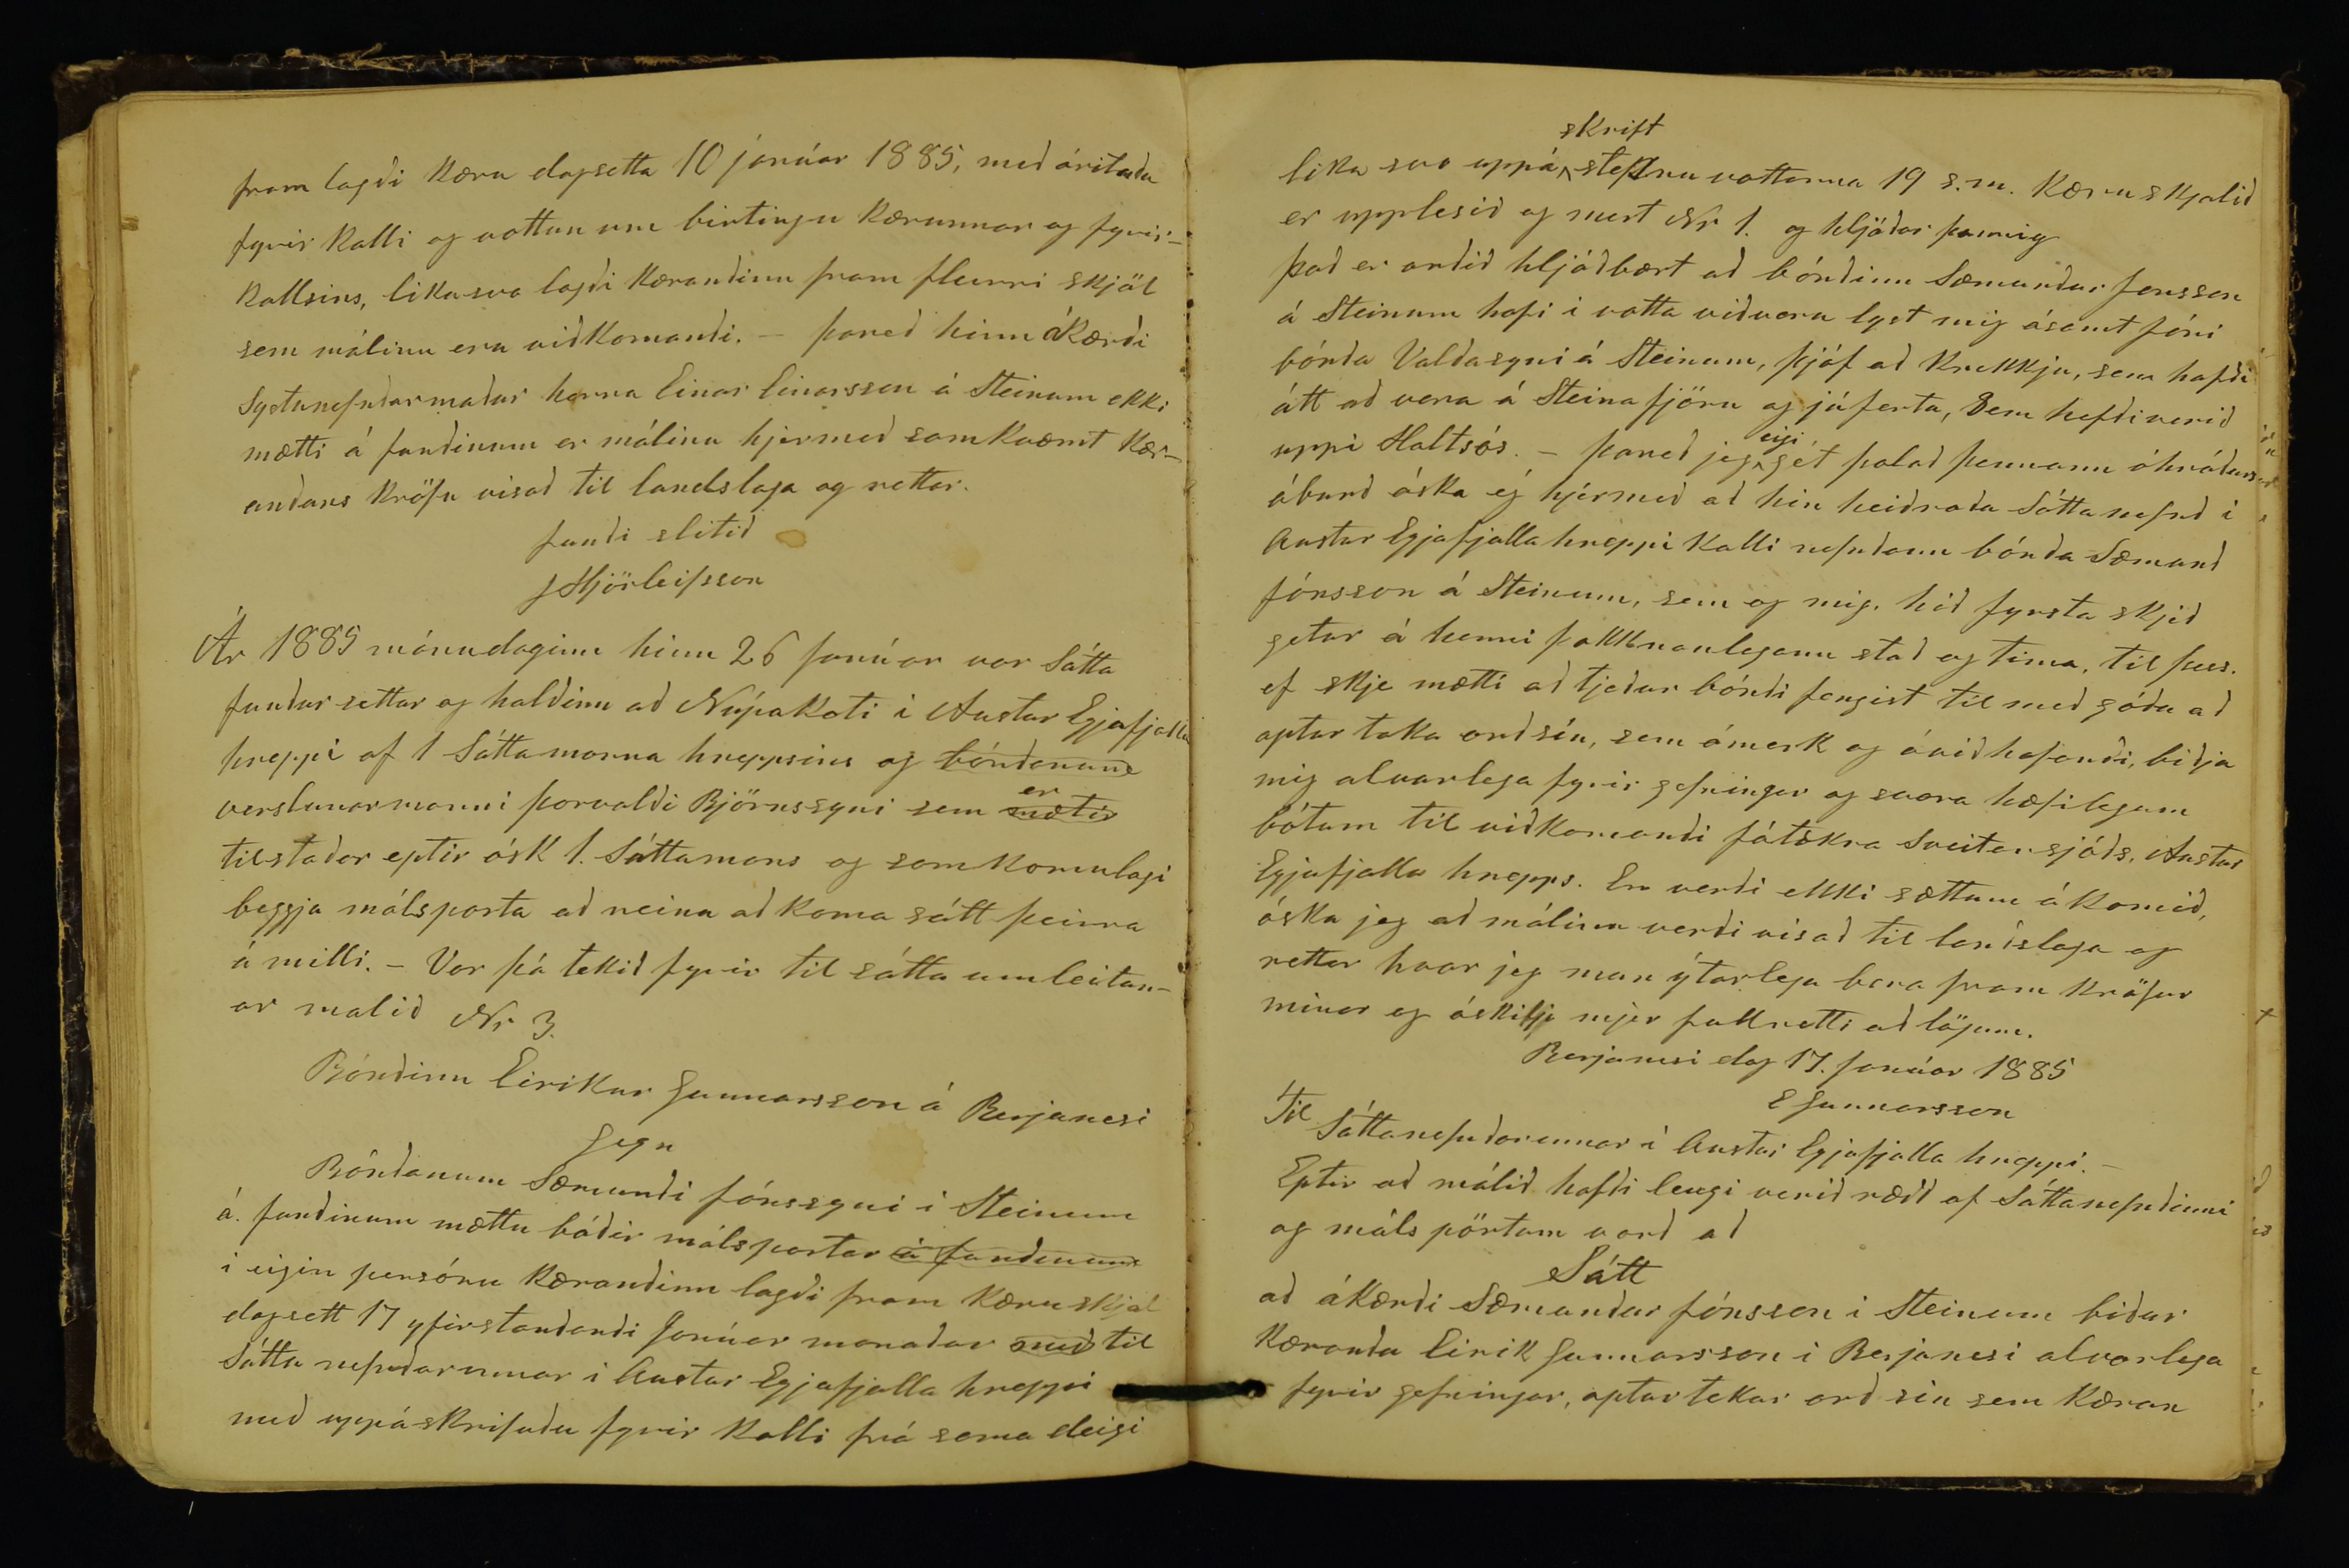 fram lagði Kæru dagsetta 10 janúar 1885, með árituðu
fyrir Kalli og vottun um birtingu Kærunnar og fyrir-
Kallsins, líkasvo lagði Kærandinn fram fleirri skjöl
sem málinu eru viðkomandi. — þareð hinn áKærði
Systunefndarmaður herra Einar Einarsson á Steinum ekki
mætti á fundinum er málinu hjermeð samkvæmt Kær-
andans Kröfu visað til landslaga og rettar.
fundi slitið
J Hjörleifsson
Ár 1885 mánudaginn hinn 26 Janúar var Sátta
fundur settur og haldinn að Núpakoti i Austur Eyjafjalla
hreppi af 1 Sáttamanna hreppsins og bóndanum
verslunarmanni þorvaldi Björnssyni sem mætir er
tilstaðar eptir ósk 1. Sáttamans og samkomulagi
beggja málsparta að reina að koma sátt þeirra
á milli. – Var þá tekið fyrir til sátta umleitun-
ar malið Nr 3.
Bóndinn Eirikur Gunnarsson á Berjanesi
Gegn
Bóndanum Sæmundi Jónssyni i Steinum
á. fundinum mættu báðir málspartar á fundinum
i eigin persónu Kærandinn lagði fram Kæru skjal
dagsett 17 yfirstandandi Janúar manaðar með til
Sátta nefndarinnar i Austur Eyjafjalla hreppi
með uppáskrifuðu fyrir Kalli frá sama deigi
lika svo uppá skrift stefnu vottanna 19 s.m. Kæru skjalið
er upplesið og merkt Nr 1. og hljóðar þannig
það er orðið hljóðbært að bóndinn Sæmundur Jonsson
á Steinum hafi i votta viðveru lyst mig ásamt Jóni
bónda Valdasyni á Steinum, þjóf að Krekkju, sem hafði
átt að vera á Steinafjöru og júferta, Sem hefði verið
uppi Holtsós. – þareð jeg eigi get þolað þennann óhróðurs
áburð óska eg hjérmeð að hin heiðraða Sáttanefnd i
Austur Eyjafjallahreppi Kalli nefndann bónda Sæmund
Jónsson á Steinum, sem og mig. hið fyrsta skjeð
getur á henni þokknanlegann stað og tima, til þess.
ef skje mætti að tjeður bóndi fengist til með góðu að
aptur taka orð sín, sem ómerk og óviðhafandi, biðja
mig alvarlega fyrir gefningar og svara hæfilegum
bótum til viðkomandi fátækra Sveitarsjóðs, Austur
Eyjafjalla hrepps. En verði ekki sættum á Komið,
óska jeg að málinu verði visað til landslaga og
rettar hvar jeg mun ýtarlega bera fram Kröfur
minar og áskilje mjer fullretti að lögum.
Berjanesi dag 17. Janúar 1885
E Gunnarsson
Til
Sáttanefndarinnar i Austur Eyjafjalla hreppi. –
Eptir að málið hafði lengi verið rædt af Sáttanefndinni
og máls pörtum varð að
Sátt
að áKærði Sæmundur Jónsson i Steinum biður
Kæranda Eirik Gunnarsson i Berjanesi alvarlega
fyrir gefningar, aptur tekur orð sin sem Kæran